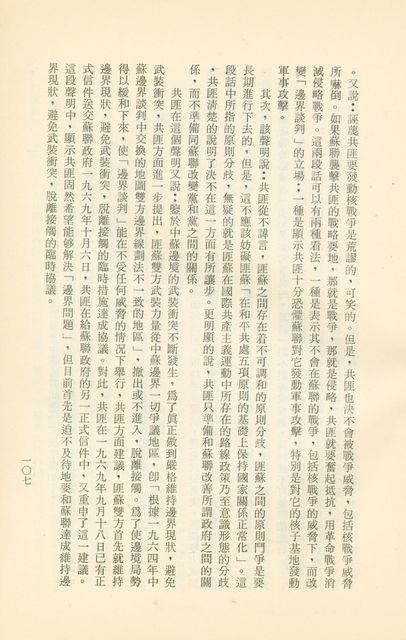 。又說：誣蔑共匪要發動核戰爭是荒謬的，可笑的。但是，共匪也決不會被戰爭威脅，包括核戰爭威脅
所嚇倒。如果蘇聯襲擊共匪的戰略要地，那就是戰爭，那就是侵略，共匪就要奮起抵抗，用革命戰爭消
滅侵略戰爭。這兩段話可以有兩種看法，一種是表示其不會在蘇聯的戰爭，包括核戰爭的威脅下，而改
變「邊界談判」的立場；一種是顯示共匪十分恐懼蘇聯對它發動軍事攻擊，特別是對它的核子基地發動
軍事攻擊。
其次，該聲明說：共匪從不諱言，匪蘇之間存在着不可調和的原則分歧，匪蘇之間的原則鬥爭是要
長期進行下去的，但是，這不應該妨礙匪蘇「在和平共處五項原則的基礎上保持國家關係正常化」。這
段話中所指的原則分歧，無疑的就是匪蘇在國際共產主義運動中所存在的路線政策乃至意識形態的分歧
，共匪清楚的說明了決不在這一方面有所讓步。更明顯的說，共匪只準備和蘇聯改善所謂政府之間的關
係，而不準備同蘇聯改變黨和黨之間的關係。
共匪在這個聲明又說：鑒於中蘇邊境的武裝衝突不斷發生，爲了眞正做到嚴格維持邊界現狀，避免
武裝衝突，共匪方面進一步提出，匪蘇雙方武裝力量從中蘇邊界一切爭議地區，卽「根據一九六四年中
蘇邊界談判中交換的地圖雙方邊界線劃法不一致的地區」，撤出或不進入，脫離接觸。爲了使邊境局勢
得以緩和下來，使「邊界談判」能在不受任何威脅的情況下舉行，共匪方面建議，匪蘇雙方首先就維持
邊界現狀，避免武裝衝突，脫離接觸的臨時措施達成協議。對此，共匪在一九六九年九月十八日已有正
式信件送交蘇聯政府一九六九年十月六日，共匪在給蘇聯政府的另一正式信件中，又重申了這一建議。
這段聲明中，顯示共匪固然希望能够解決「邊界問題」，但目前首先是迫不及待地要和蘇聯達成維持邊
界現狀，避免武裝衝突，脫離接觸的臨時協議。
一〇七